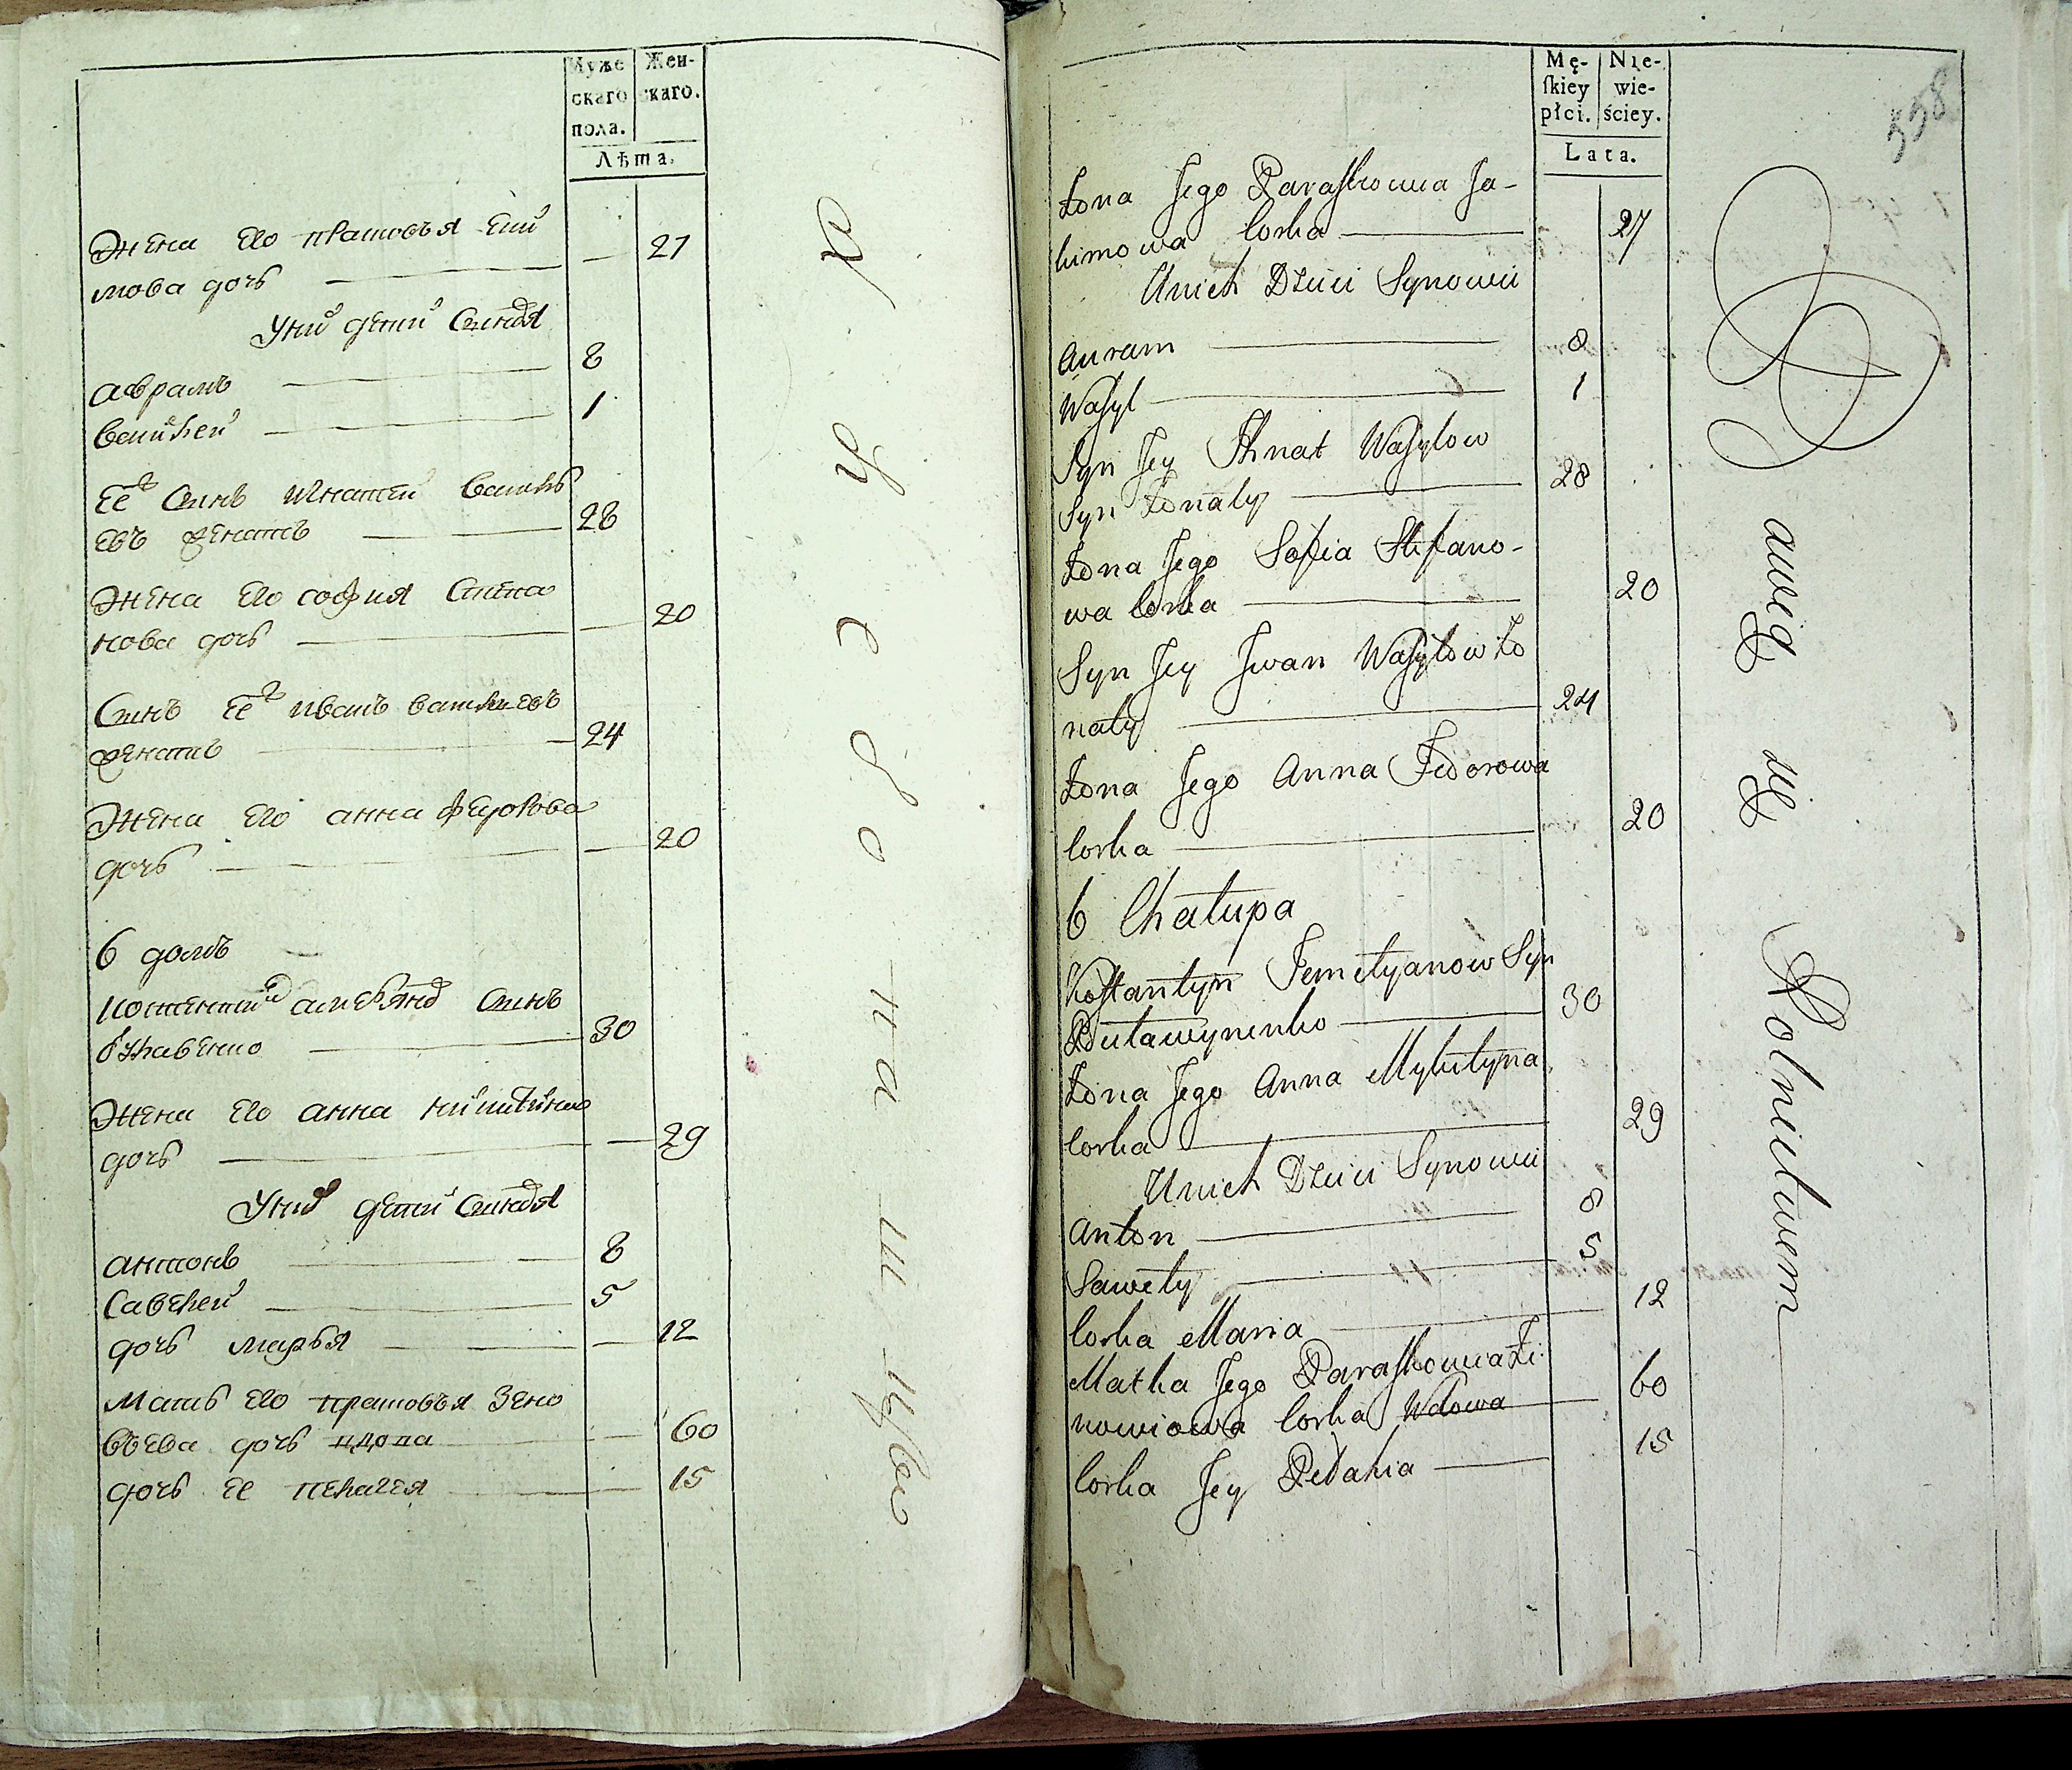 Муже
скаго
пола.
Жен-
скаго.
Лѣта.
Жена его прасковья Еки
мова дочь — 27
У них детей Синовя
аврамъ — 8
Василей — 1
Ее Синъ Игнатей Василь
евъ женатъ — 28
Жена его софия Степа
нова дочь — 20
Синъ Ее иванъ васильевъ
женатъ — 24
Жена его анна федорова
дочь — 20
6 домъ
Синъ
30
Жена его анна
дочь — 29
У них детей Синовя
антонъ — 8
Савелей — 5
дочь марья — 12
Мать его прасковья Зено
вьева дочь вдова — 60
дочь ее пелагея — 15
558
Mę-
skiey
płci.
Nie-
wie-
ściey.
Lata.
Żona Jego Paraskowia Ja-
kimowa Corka — 27
Unich Dzieci Synowie
Auram — 8
Wasyl — 1
Syn Jey Ihnat Wasylow
Syn Żonaty — 28
Żona Jego Sofia Stefano-
wa Corka — 20
Syn Jey Iwan Wasylow Żo
naty — 24
Żona Jego Anna Fedorowa
Corka — 20
6 Chałupa
Kostantyn Jemelyanow Syn
30
Żona Jego Anna
Corka — 29
Unich Dzieci Synowie
Anton — 8
Sawely — 5
Corka Maria — 12
Matka Jego Paraskowia Zi
nowiowa Corka Wdowa — 60
Corka Jey Pelahia — 15
Bawią się Rolnictwem